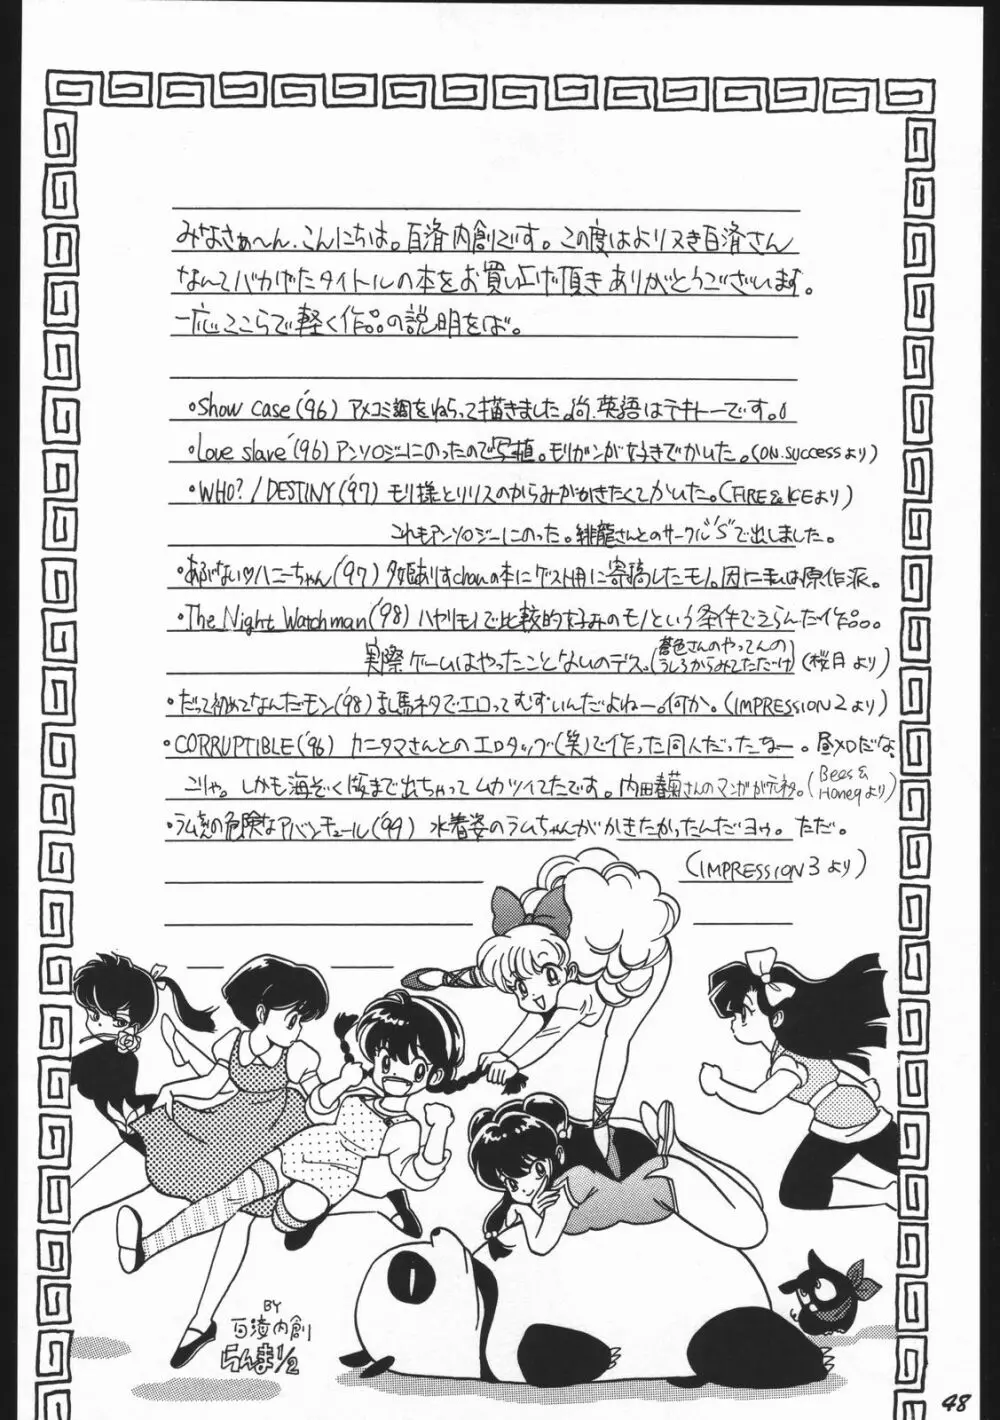 みなさぁ〜ん、こんにちは。百済内創です。この度はよりヌき百済さん
なんてバカげたタイトルの本をお買い上げ頂きありがとうございます。
一応ここらで軽く作品の説明をば。
・Show case('96) アメコミ調をねらって描きました。尚、英語はテキトーです。
・Love slave('96) アンソロジーにのったので写植。モリガンが好きでかいた。(ON.SUCCESSより)
・WHO?/DESTINY('97) モリ様とリリスのからみがかきたくてかいた。(FIRE&ICEより)
これもアンソロジーにのった。緋龍さんとのサークル"S"で出しました。
・あぶない♡ハニーちゃん('97) 夕姫ありすchanの本にゲスト用に寄稿したモノ。因に私は原作派。
・The Night Watchman('98) ハヤリモノで比較的好みのモノという条件でえらんだ作品。
実際ゲームはやったことないのデス。(蒼色さんのやってんのうしろからみてただけ)(桜月より)
・だって初めてなんだモン('98) 乱馬ネタでエロってむずいんだよねー。何か。(IMPRESSION2より)
・CORRUPTIBLE('96) カニタマさんとのエロタッグ(笑)で作った同人だったなー。昼メロだな、
こりゃ。しかも海ぞく版まで出ちゃってムカツイてたです。内田春菊さんのマンガが元ネタ。(Bees & Honeyより)
・ラムちゃんの危険なアバンチュール('99) 水着姿のラムちゃんがかきたかったんだヨゥ。ただ。
(IMPRESSION3より)
BY
百済内創
らんま1/2
48